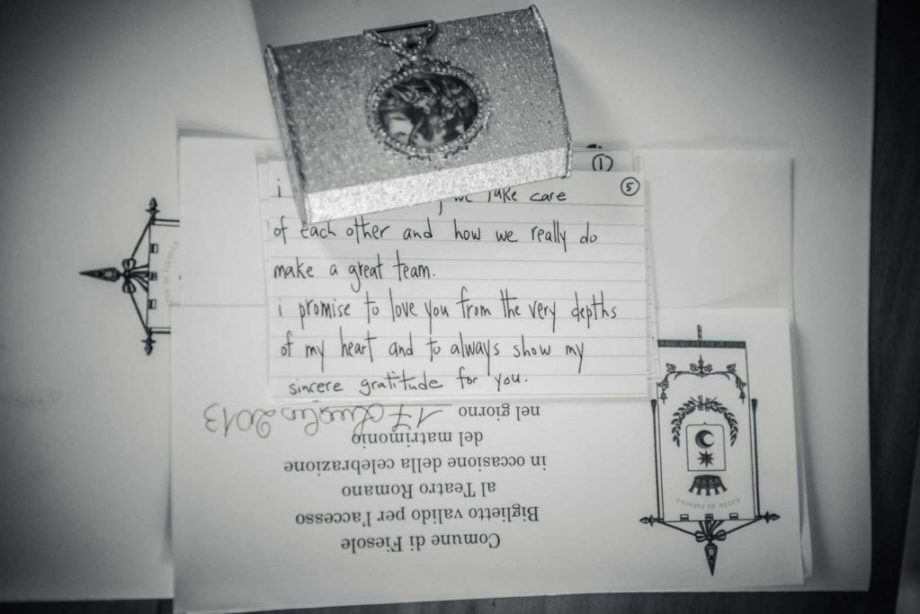 1
5
i
we take care
of each other and how we really do
make a great team.
i promise to love you from the very depths
of my heart and to always show my
sincere gratitude for you.
Comune di Fiesole
Biglietto valido per l'accesso
al Teatro Romano
in occasione della celebrazione
del matrimonio
nel giorno 17 Luglio 2013
CITTÀ DI FIESOLE